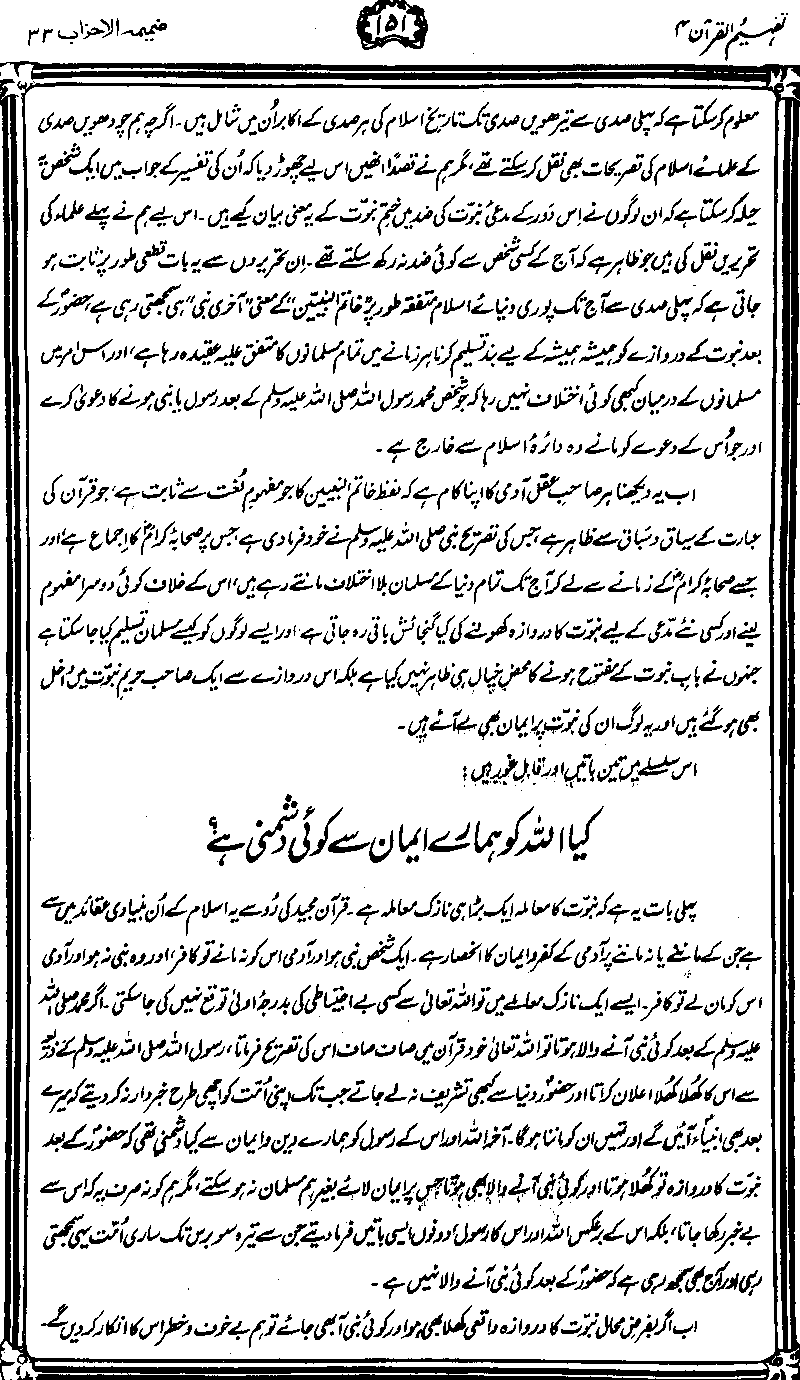 تفہیم القرآن ۴
۱۵۱
ضمیمہ الاحزاب ۳۳
معلوم کر سکتا ہے کہ پہلی صدی سے تیرھویں صدی تک تاریخ اسلام کی ہر صدی کے اکابر اُن میں شامل ہیں۔ اگرچہ ہم چودھویں صدی
کے علمائے اسلام کی تصریحات بھی نقل کر سکتے تھے، مگر ہم نے قصدًا انھیں اس لیے چھوڑ دیا کہ اُن کی تفسیر کے جواب میں ایک شخص یہ
حیلہ کر سکتا ہے کہ ان لوگوں نے اِس دَور کے مدعیِ نبوت کی ضد میں ختم نبوّت کے یہ معنی بیان کیے ہیں۔ اس لیے ہم نے پہلے علماء کی
تحریریں نقل کی ہیں جو ظاہر ہے کہ آج کے کسی شخص سے کوئی ضد نہ رکھ سکتے تھے۔ اِن تحریروں سے یہ بات قطعی طور پر ثابت ہو
جاتی ہے کہ پہلی صدی سے آج تک پوری دنیائے اسلام متفقہ طور پر "خاتم النبیین" کے معنی "آخری نبی" ہی سمجھتی رہی ہے، حضورؐ کے
بعد نبوت کے دروازے کو ہمیشہ ہمیشہ کے لیے بند تسلیم کرنا ہر زمانے میں تمام مسلمانوں کا متفق علیہ عقیدہ رہا ہے، اور اس امر میں
مسلمانوں کے درمیان کبھی کوئی اختلاف نہیں رہا کہ جو شخص محمد رسول اللہ صلی اللہ علیہ وسلم کے بعد رسول یا نبی ہونے کا دعویٰ کرے
اور جو اُس کے دعوے کو مانے وہ دائرۂ اسلام سے خارج ہے۔
اب یہ دیکھنا ہر صاحبِ عقل آدمی کا اپنا کام ہے کہ لفظ خاتم النبیین کا جو مفہوم لُغت سے ثابت ہے، جو قرآن کی
عبارت کے سیاق و سباق سے ظاہر ہے، جس کی تصریح نبی صلی اللہ علیہ وسلم نے خود فرما دی ہے، جس پر صحابۂ کرامؓ کا اِجماع ہے، اور
جسے صحابۂ کرامؓ کے زمانے سے لے کر آج تک تمام دنیا کے مسلمان بلا اختلاف مانتے رہے ہیں، اس کے خلاف کوئی دوسرا مفہوم
لینے اور کسی نئے مدعی کے لیے نبوّت کا دروازہ کھولنے کی کیا گنجائش باقی رہ جاتی ہے، اور ایسے لوگوں کو کیسے مسلمان تسلیم کیا جا سکتا ہے
جنھوں نے بابِ نبوت کے مفتوح ہونے کا محض خیال ہی ظاہر نہیں کیا ہے بلکہ اس دروازے سے ایک صاحب حریمِ نبوّت میں داخل
بھی ہو گئے ہیں اور یہ لوگ ان کی نبوّت پر ایمان بھی لے آئے ہیں۔
اس سلسلے میں تین باتیں اور قابلِ غور ہیں:
کیا اللہ کو ہمارے ایمان سے کوئی دشمنی ہے؟
پہلی بات یہ ہے کہ نبوّت کا معاملہ ایک بڑا ہی نازک معاملہ ہے۔ قرآن مجید کی رُو سے یہ اسلام کے اُن بنیادی عقائد میں سے
ہے جن کے ماننے یا نہ ماننے پر آدمی کے کفر و ایمان کا انحصار ہے۔ ایک شخص نبی ہو اور آدمی اس کو نہ مانے تو کافر، اور وہ نبی نہ ہو اور آدمی
اس کو مان لے تو کافر۔ ایسے ایک نازک معاملے میں تو اللہ تعالیٰ سے کسی بے احتیاطی کی بدرجۂ اولیٰ توقع نہیں کی جا سکتی۔ اگر محمد صلی اللہ
علیہ وسلم کے بعد کوئی نبی آنے والا ہوتا تو اللہ تعالیٰ خود قرآن میں صاف صاف اس کی تصریح فرماتا، رسول اللہ صلی اللہ علیہ وسلم کے ذریعہ
سے اس کا کھُلا کھُلا اعلان کراتا اور حضورؐ دنیا سے کبھی تشریف نہ لے جاتے جب تک اپنی اُمت کو اچھی طرح خبردار نہ کر دیتے کہ میرے
بعد بھی انبیاء آئیں گے اور تمہیں ان کو ماننا ہوگا۔ آخر اللہ اور اس کے رسول کو ہمارے دین و ایمان سے کیا دشمنی تھی کہ حضورؐ کے بعد
نبوّت کا دروازہ تو کھُلا ہوتا اور کوئی نبی آنے والا بھی ہوتا جس پر ایمان لائے بغیر ہم مسلمان نہ ہو سکتے، مگر ہم کو نہ صرف یہ کہ اس سے
بے خبر رکھا جاتا، بلکہ اس کے برعکس اللہ اور اس کا رسول، دونوں ایسی باتیں فرما دیتے جن سے تیرہ سو برس تک ساری اُمّت یہی سمجھتی
رہی اور آج بھی سمجھ رہی ہے کہ حضورؐ کے بعد کوئی نبی آنے والا نہیں ہے۔
اب اگر بفرضِ محال نبوّت کا دروازہ واقعی کھلا بھی ہو اور کوئی نبی آ بھی جائے تو ہم بے خوف و خطر اس کا انکار کر دیں گے۔